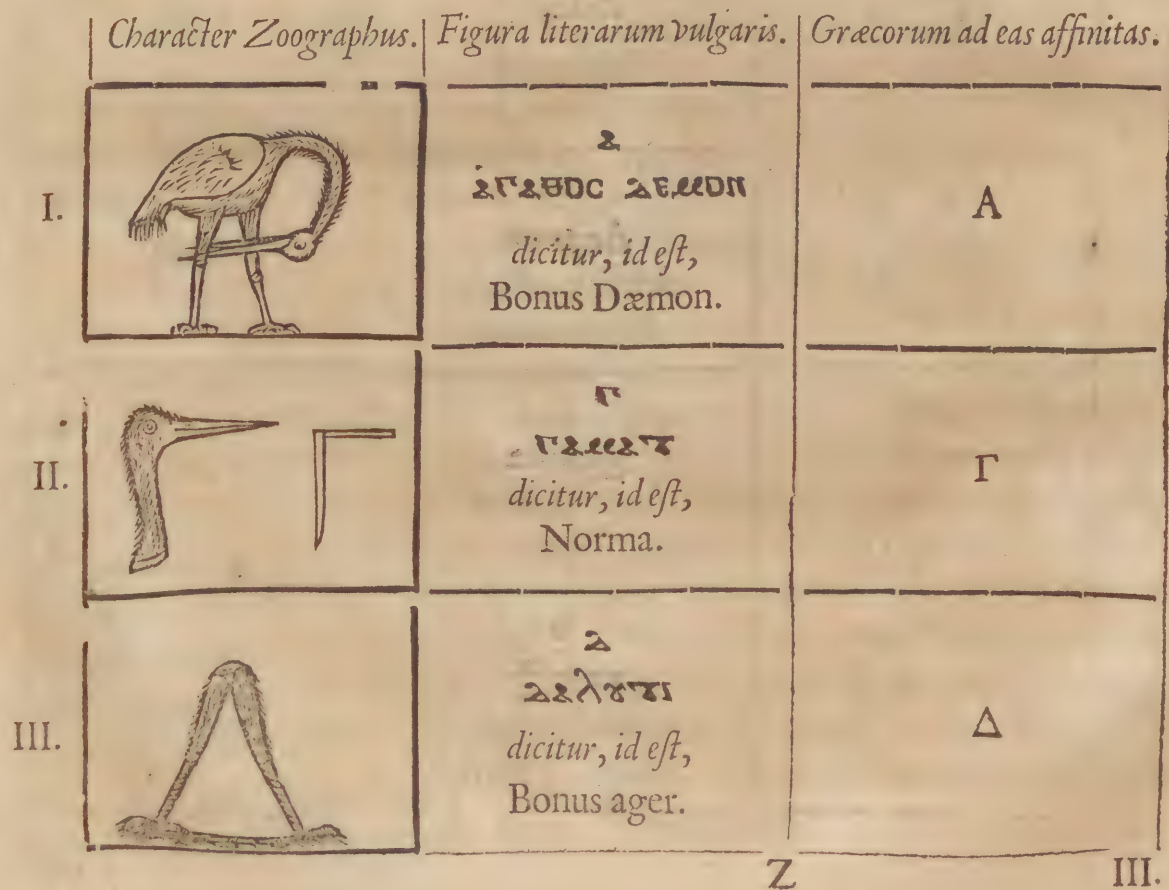 Character Zoographus. Figura literarum vulgaris. Græcorum ad eas affinitas.
I.
ⲁ
ⲁⲅⲁⲑⲟⲥ ⲇⲉⲙⲟⲛ
dicitur, id eſt,
Bonus Dæmon.
Α
II.
ⲅ
dicitur, id eſt,
Norma.
Γ
III.
ⲇ
dicitur, id eſt,
Bonus ager.
Δ
Z III.